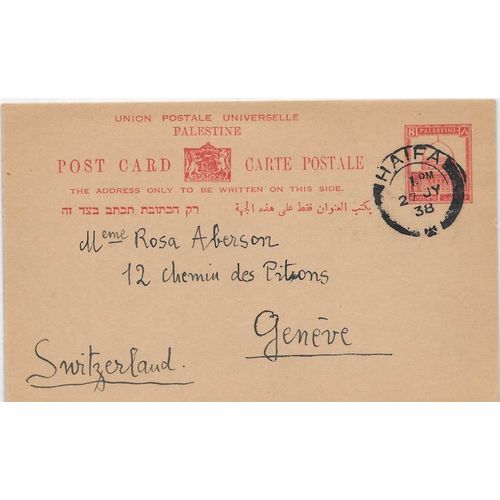 UNION POSTALE UNIVERSELLE
PALESTINE
POST CARD CARTE POSTALE
THE ADDRESS ONLY TO BE WRITTEN ON THIS SIDE.
רק הכתובת תכתב בצד זה يكتب العنوان فقط على هذه الجهة
PALESTINE
HAIFA
1 PM
27 JY
38
Meme Rosa Aberson
12 Chemin des Pitons
Genève
Switzerland.